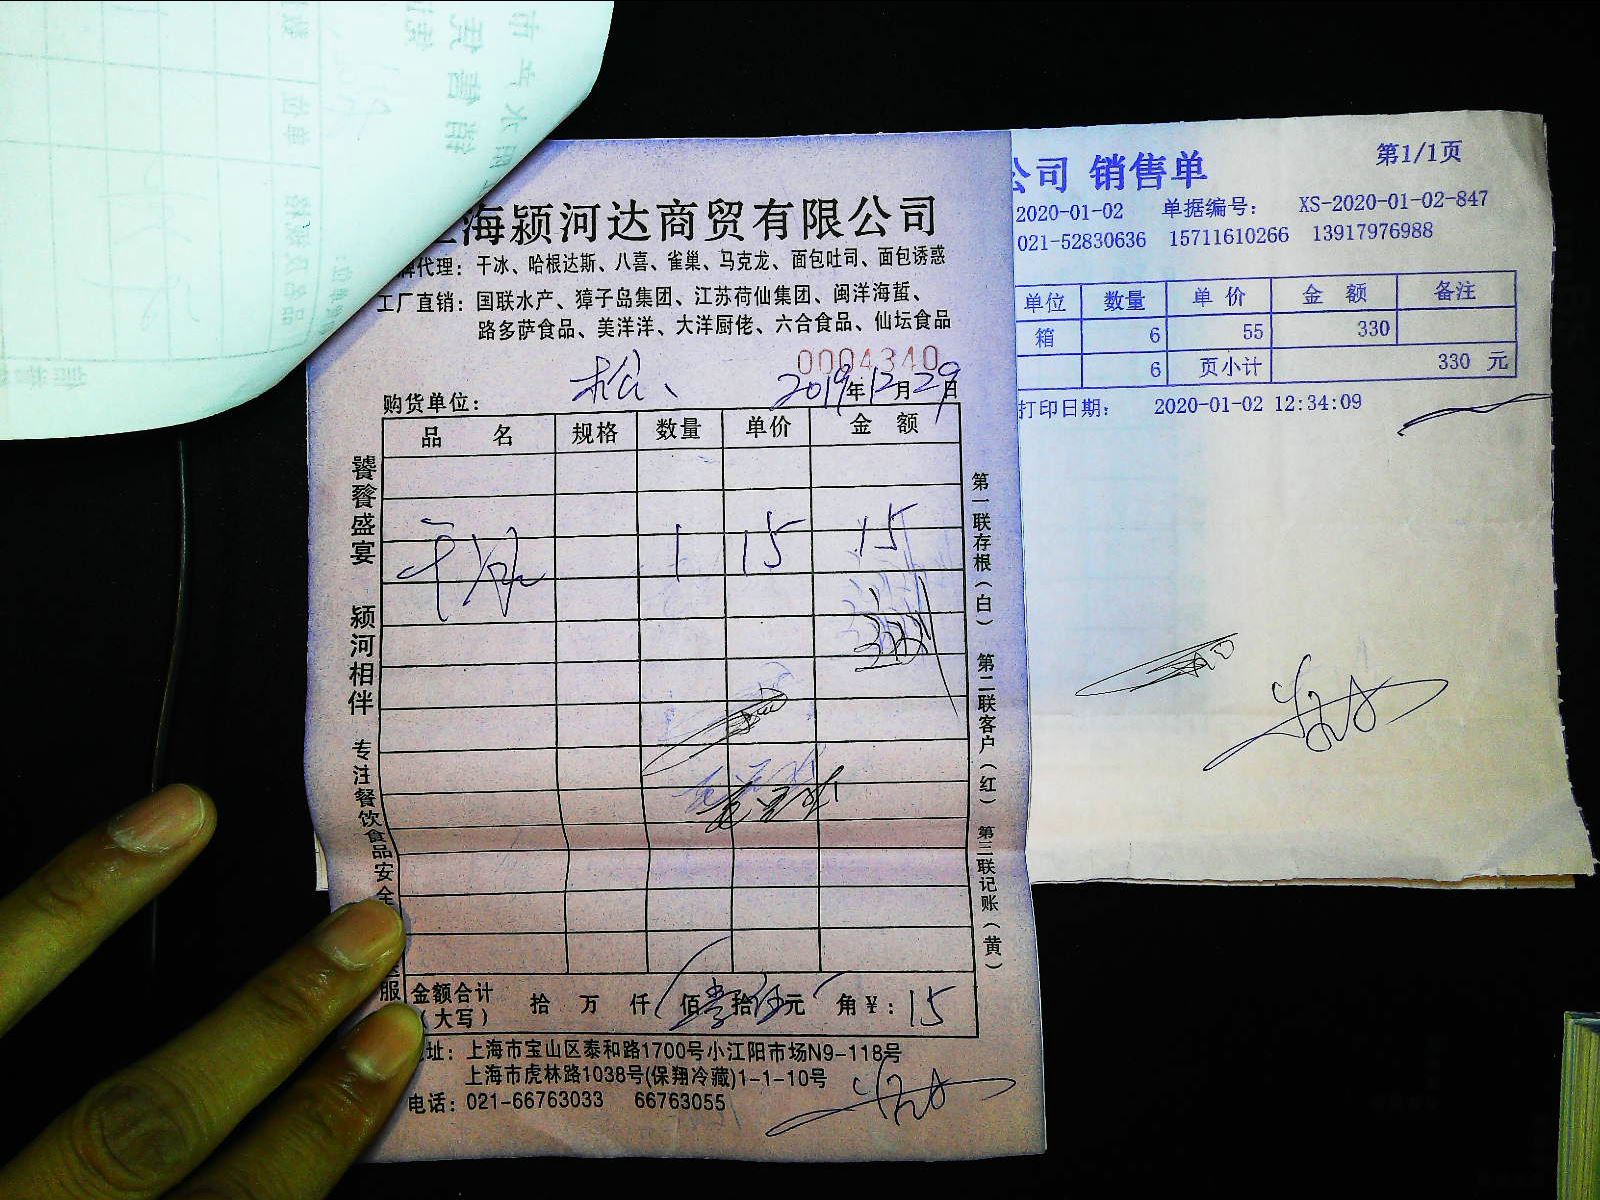 海颍河达商贸有限公司
牌代理：干冰、哈根达斯、八喜、雀巢、马克龙、面包吐司、面包诱惑
工厂直销：国联水产、獐子岛集团、江苏荷仙集团、闽洋海蜇、
路多萨食品、美洋洋、大洋厨佬、六合食品、仙坛食品
0004340
购货单位： 松、 2019年12月29日
品 名 规格 数量 单价 金 额
干冰 1 15 15
金额合计（大写） 拾 万 仟 佰 壹拾伍元 角 ¥：15
址：上海市宝山区泰和路1700号小江阳市场N9-118号
上海市虎林路1038号(保翔冷藏)1-1-10号
电话：021-66763033 66763055
饕餮盛宴 颍河相伴 专注餐饮食品安全 服
第一联存根（白） 第二联客户（红） 第三联记账（黄）
公司 销售单 第1/1页
2020-01-02 单据编号： XS-2020-01-02-847
021-52830636 15711610266 13917976988
单位 数量 单 价 金 额 备注
箱 6 55 330
6 页小计 330 元
打印日期： 2020-01-02 12:34:09